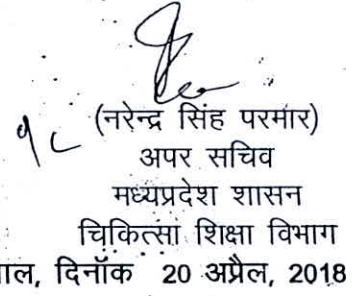 (नरेन्द्र सिंह परमार)
अपर सचिव
मध्यप्रदेश शासन
चिकित्सा शिक्षा विभाग
दिनॉक 20 अप्रैल, 2018